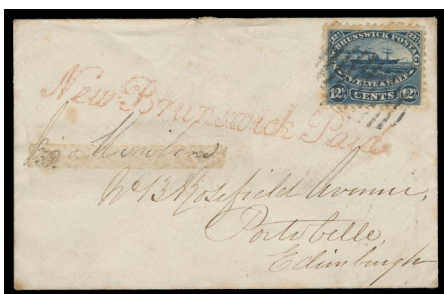 BRUNSWICK POSTAGE
TWELVE & HALF
12½ CENTS 12½
New Brunswick Paid.
No 13 Rosefield Avenue,
Portobello,
Edinburgh